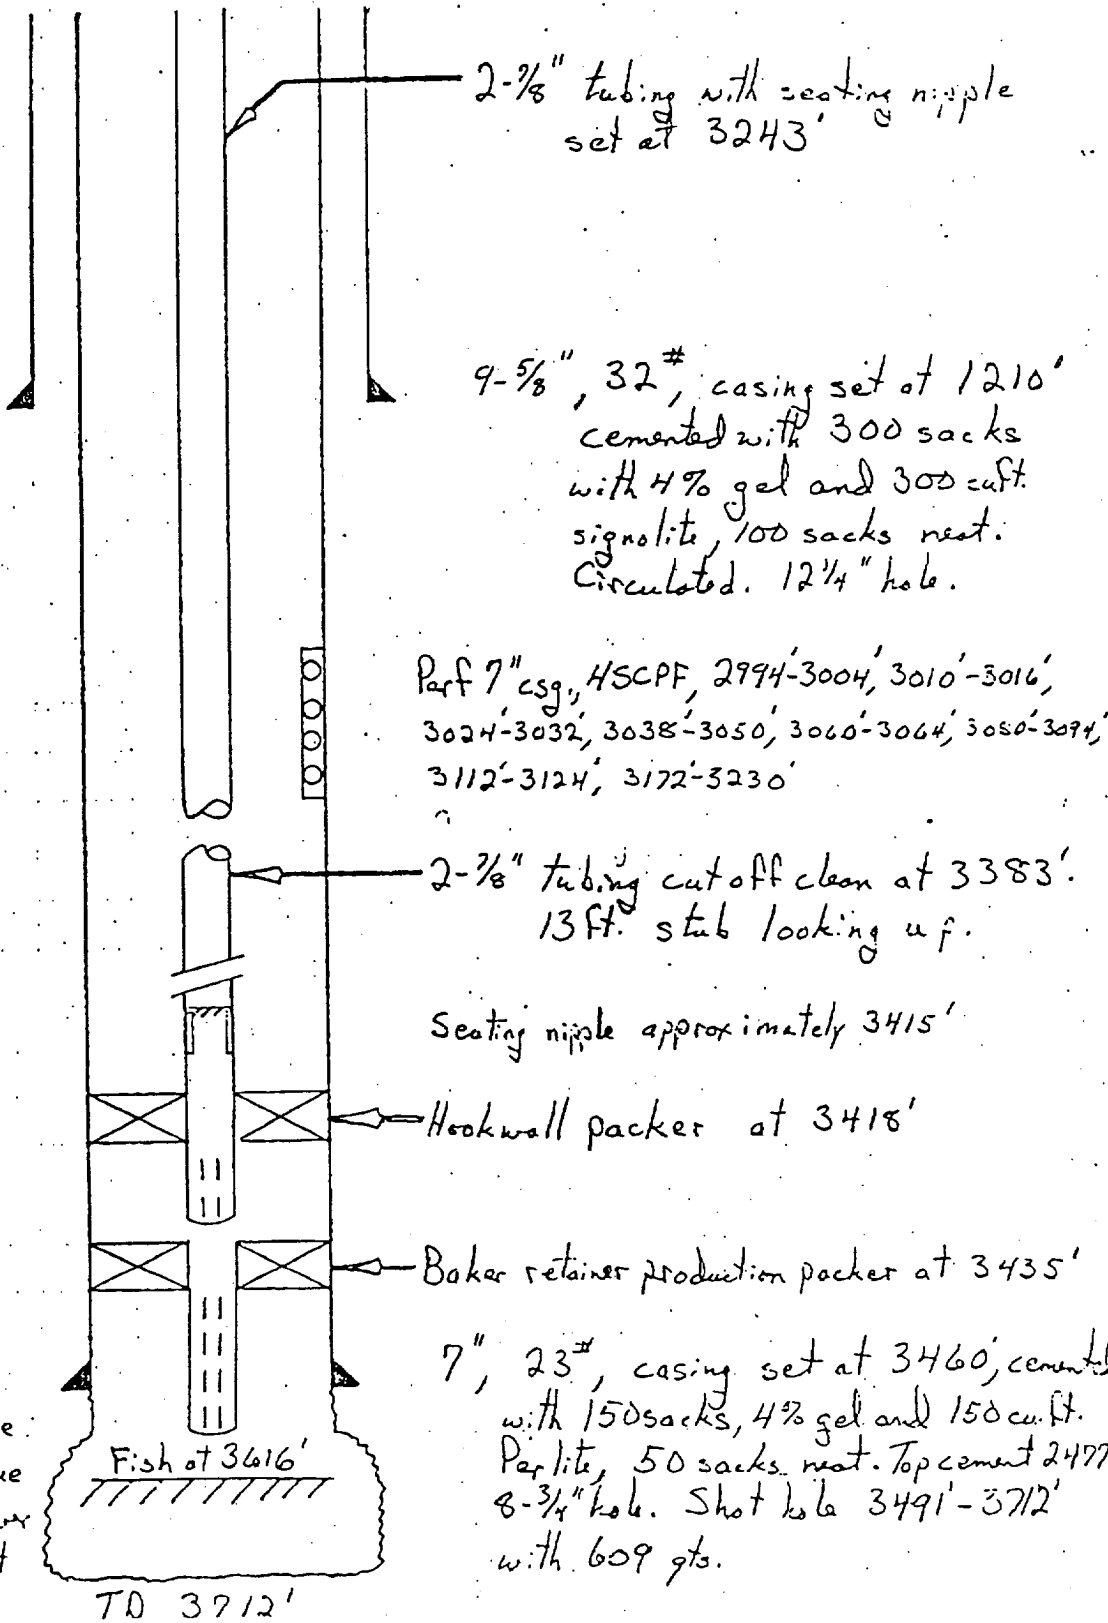 2-7/8" tubing with seating nipple
set at 3243'
9-5/8", 32#, casing set at 1210'
cemented with 300 sacks
with 4% gel and 300 cuft.
signolite, 100 sacks neat.
Circulated. 12 1/4" hole.
Perf 7" csg., 4SCPF, 2994'-3004', 3010'-3016',
3024'-3032', 3038'-3050', 3060'-3064', 3080'-3094',
3112'-3124', 3172'-3230'
2-7/8" tubing cut off clean at 3383'.
13 ft. stub looking up.
Seating nipple approximately 3415'
Hookwall packer at 3418'
Baker retainer production packer at 3435'
7", 23#, casing set at 3460', cemented
with 150 sacks, 4% gel and 150 cu.ft.
Perlite, 50 sacks neat. Top cement 2477
8-3/4" hole. Shot hole 3491'-3712'
with 609 qts.
Fish at 3616'
TD 3712'